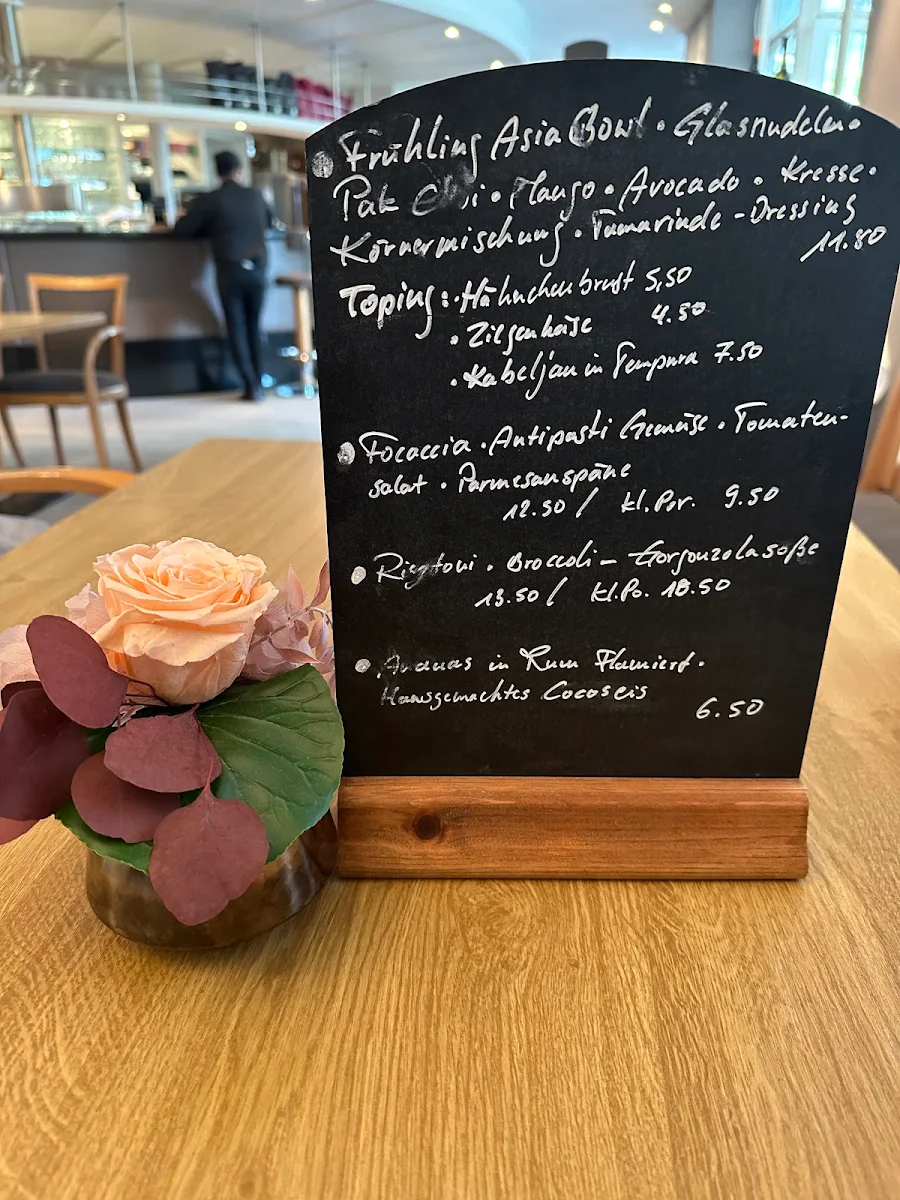 Frühling Asia Bowl • Glasnudeln •
Pak Choi • Mango • Avocado • Kresse •
Körnermischung • Tamarinde - Dressing
11.80
Toping: • Hähnchenbrust 5,50
• Ziegenkäse 4.50
• Kabeljau in Tempura 7.50
Focaccia • Antipasti Gemüse • Tomaten-
salat • Parmesanspäne
12.50 / kl. Por. 9.50
Rigatoni • Broccoli - Gorgonzolasoße
13.50 / kl. Po. 10.50
Ananas in Rum Flamiert •
Hausgemachtes Cocoseis
6.50